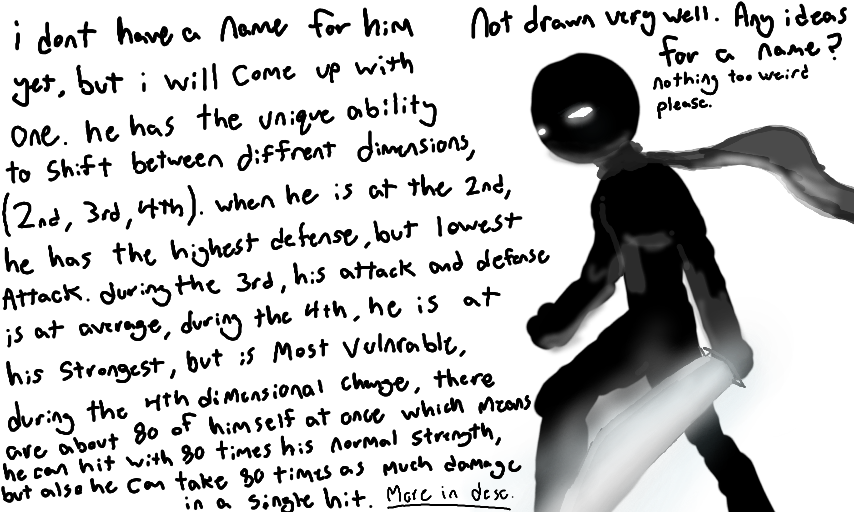 i dont have a name for him
yet, but i will come up with
one. he has the unique ability
to shift between diffrent dimensions,
(2nd, 3rd, 4th). when he is at the 2nd,
he has the highest defense, but lowest
Attack. during the 3rd, his attack and defense
is at average, during the 4th, he is at
his strongest, but is Most Vulnrable,
during the 4th dimensional change, there
are about 80 of himself at once which means
he can hit with 80 times his normal strength,
but also he can take 80 times as much damage
in a single hit. More in desc.
Not drawn very well. Any ideas
for a name?
nothing too weird
please.